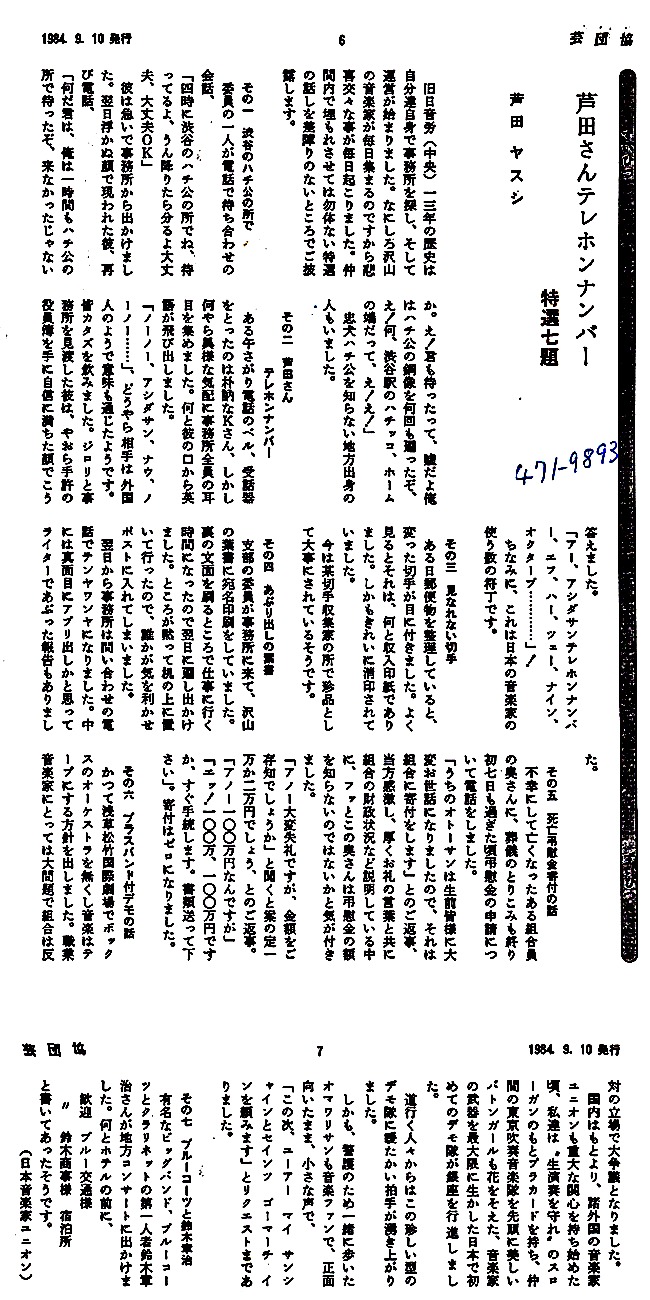 1984. 9. 10 発行
6
芸団協
芦田さんテレホンナンバー
特選七題
芦田 ヤスシ
471-9893
旧日音労(中央)一三年の歴史は
自分達自身で事務所を探し、そして
運営が始まりました。なにしろ沢山
の音楽家が毎日集まるのですから悲
喜交々な事が毎日起こりました。仲
間内で埋もれさせては勿体ない特選
の話しを差障りのないところでご披
露します。
その一 渋谷のハチ公の所で
委員の一人が電話で待ち合わせの
会話、
「四時に渋谷のハチ公の所でね、待
ってるよ。うん降りたら分るよ大丈
夫、大丈夫OK」
彼は急いで事務所から出かけまし
た。翌日浮かぬ顔で現われた彼、再
び電話、
「何だ君は、俺は一時間もハチ公の
所で待ったぞ、来なかったじゃない
か。え!君も待ったって、嘘だよ俺
はハチ公の銅像を何回も廻ったぞ、
え!何、渋谷駅のハチッコ、ホーム
の端だって、え!え!」
忠犬ハチ公を知らない地方出身の
人もいました。
その二 芦田さん
テレホンナンバー
ある午さがり電話のベル、受話器
をとったのは朴訥なKさん、しかし
何やら異様な気配に事務所全員の耳
目を集めました。何と彼の口から英
語が飛び出しました。
「ノーノー、アシダサン、ナウ、ノ
ーノー……」、どうやら相手は外国
人のようで意味も通じたようです。
皆カタズを飲みました。ジロリと事
務所を見渡した彼は、やおら手許の
役員簿を手に自信に満ちた顔でこう
答えました。
「アー、アシダサンテレホンナンバ
ー、エフ、ハー、ツェー、ナイン、
オクターブ…………」!
ちなみに、これは日本の音楽家の
使う数の符丁です。
その三 見なれない切手
ある日郵便物を整理していると、
変った切手が目に付きました。よく
見るとそれは、何と収入印紙であり
ました。しかもきれいに消印されて
いました。
今は某切手収集家の所で珍品とし
て大事にされているそうです。
その四 あぶり出しの葉書
支部の委員が事務所に来て、沢山
の葉書に宛名印刷をしていました。
裏の文面を刷るところで仕事に行く
時間になったので翌日に廻し出かけ
ました。ところが黙って机の上に置
いて行ったので、誰かが気を利かせ
ポストに入れてしまいました。
翌日から事務所は問い合わせの電
話でテンヤワンヤになりました。中
には真面目にアブリ出しかと思って
ライターであぶった報告もありまし
た。
その五 死亡弔慰金寄付の話
不幸にして亡くなったある組合員
の奥さんに、葬儀のとりこみも終り
初七日も過ぎた頃弔慰金の申請につ
いて電話をしました。
「うちのオトーサンは生前皆様に大
変お世話になりましたので、それは
組合に寄付をします」とのご返事、
当方感激し、厚くお礼の言葉と共に
組合の財政状況など説明している中
に、フッとこの奥さんは弔慰金の額
を知らないのではないかと気が付き
ました。
「アノー大変失礼ですが、金額をご
存知でしょうか」と聞くと案の定一
万か二万円でしょう、とのご返事。
「アノー一〇〇万円なんですが」
「エッ!一〇〇万、一〇〇万円です
か、すぐ手続します。書類送って下
さい」。寄付はゼロになりました。
その六 ブラスバンド付デモの話
かつて浅草松竹国際劇場でボック
スのオーケストラを無くし音楽はテ
ープにする方針を出しました。職業
音楽家にとっては大問題で組合は反
芸団協
7
1984. 9. 10 発行
対の立場で大争議となりました。
国内はもとより、諸外国の音楽家
ユニオンも重大な関心を持ち始めた
頃、私達は“生演奏を守れ”のスロ
ーガンのもとプラカードを持ち、仲
間の東京吹奏音楽隊を先頭に美しい
バトンガールも花をそえた、音楽家
の武器を最大限に生かした日本で初
めてのデモ隊が銀座を行進しまし
た。
道行く人々からはこの珍しい型の
デモ隊に暖たかい拍手が湧き上がり
ました。
しかも、警護のため一緒に歩いた
オマワリサンも音楽ファンで、正面
向いたまま、小さな声で、
「この次、ユーアー マイ サンシ
ャインとセインツ ゴーマーチ イ
ンを頼みます」とリクエストまであ
りました。
その七 ブルーコーツと鈴木章治
有名なビッグバンド、ブルーコー
ツとクラリネットの第一人者鈴木章
治さんが地方コンサートに出かけま
した。何とホテルの前に、
歓迎 ブルー交通様
〃 鈴木商事様 宿泊所
と書いてあったそうです。
(日本音楽家ユニオン)